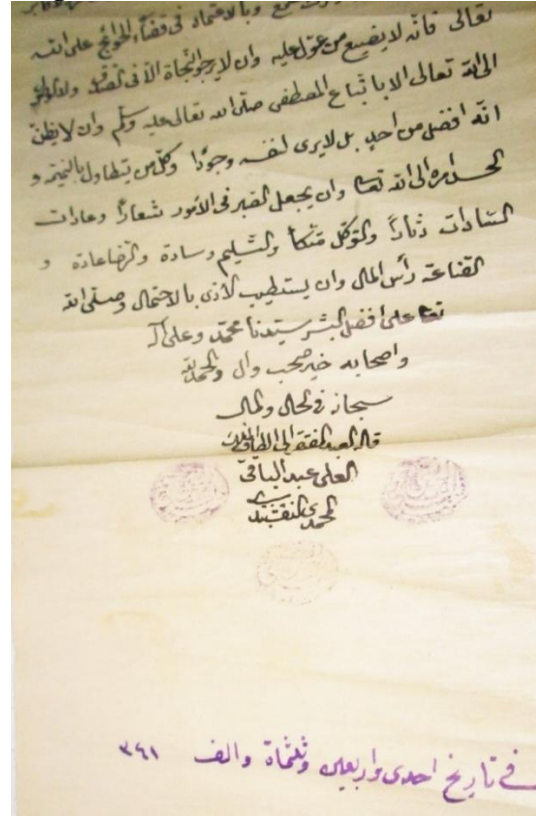 وبالاعتماد فى قضاء الحوائج على الله
تعالى فانه لا يضيع من عول عليه وان لا يرجو النجاة الا فى الصدق ولا الوصول
الى الله تعالى الا باتباع المصطفى صلى الله تعالى عليه وسلم وان لا يظن
انه افضل من احد بل لا يرى لنفسه وجودًا وكل من يتطاول بالنميمة و
الحسد امره الى الله تعالى وان يجعل الصبر فى الأمور شعارًا وعادات
السادات دثارًا والتوكل متكأ والتسليم وسادة والرضا عادة و
القناعة رأس المال وان يستطيب الأذى بالاحتمال وصلى الله
تعالى على افضل البشر سيدنا محمد وعلى آله
واصحابه خير صحب وآل والحمد لله
فى الحال والمآل
قاله العبد المفتقر الى الطاف
العلى عبد الباقى
النقشبندى
فى تاريخ احدى واربعين وثلثمأة والف ٣٤١